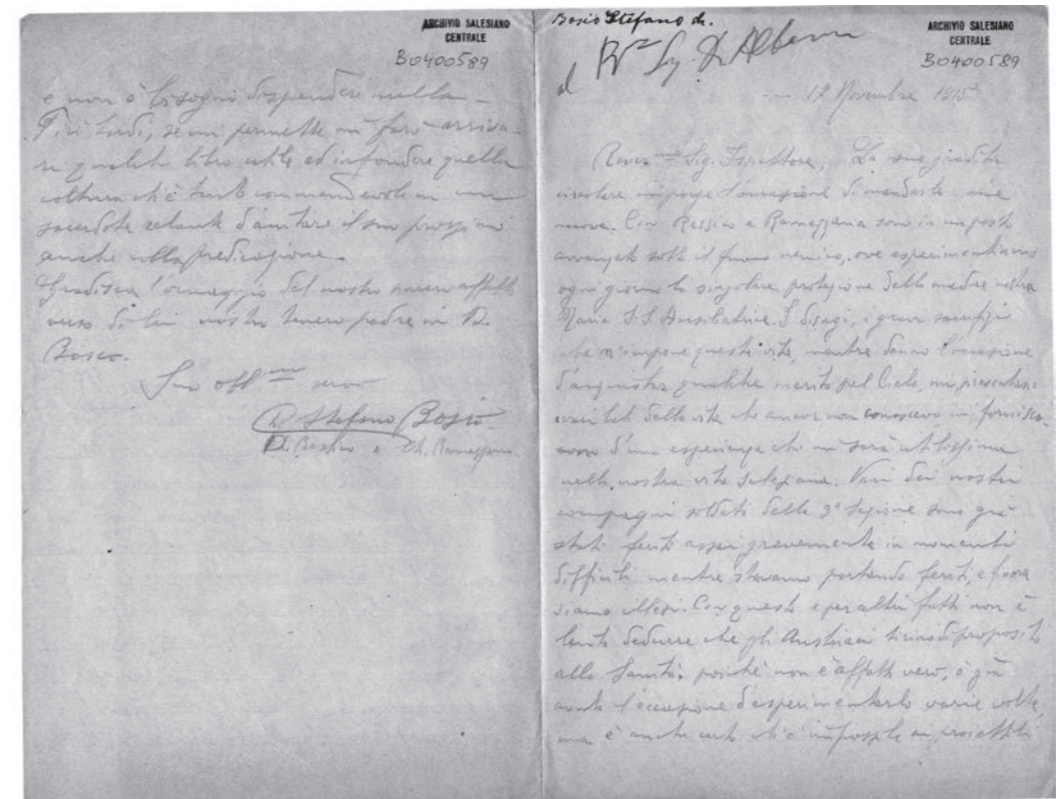 ARCHIVIO SALESIANO
CENTRALE
B0400589
e non è bisogni spendere nulla -
Più tardi, se mi permette mi farò arriva-
re qualche libro utile ad infondere quella
coltura ch'è tanto commendevole in un
sacerdote zelante d'aiutare il suo prossimo
anche colla predicazione.
Gradisca l'omaggio del nostro affetto
verso di Lei nostro tenero padre in D.
Bosco.
Suo obb.mo servo
D. Stefano Bosio
D. e Ch. Ramezzana
Bosio Stefano dr.
al Sig. D. Albera
ARCHIVIO SALESIANO
CENTRALE
B0400589
17 Novembre 1915
Rever.mo Sig. Ispettore, La sua gradita
circolare mi porge l'occasione di mandarle mie
nuove. Con e Ramezzana sono in un posto
avanzato sotto il fuoco nemico, ove esperimentiamo
ogni giorno la singolare protezione della madre nostra
Maria S.S. Ausiliatrice. I disagi, i gravi sacrifizi
che c'impone questa vita, mentre danno l'occasione
d'acquistar qualche merito pel Cielo, mi presentano
vari lati della vita che ancor non conoscevo mi forniscono
d'una esperienza che mi sarà utilissima
nella nostra vita salesiana. Vari dei nostri
compagni soldati della 3ª sezione sono già
stati feriti assai gravemente in momenti
difficili mentre stavamo portando feriti, e finora
siamo illesi. Con questo e per altri fatti non è
lecito dedurre che gli Austriaci tirino di proposito
alla Sanità, poiché non è affatto vero, e già
avuto l'occasione d'esperimentarlo varie volte,
ma è anche certo ch'è impossibile ai proiettili